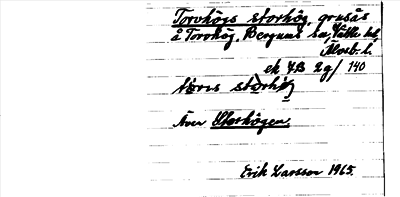 Torvhögs storhög, grusås
å Torvhög, Bergums sn, Vättle hd,
Älvsb. l.
ek 7B 2g/ 140
störhög
Även Storhögen.
Erik Larsson 1965.